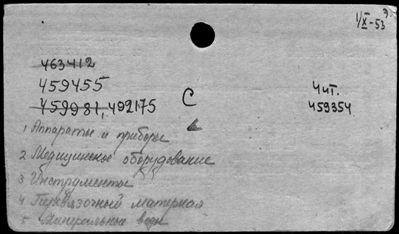 1/X-53
463412
459455
459981, 492175 С
Чит.
459354
1 Аппараты и приборы
2 Медицинское оборудование
3 Инструменты
4 Перевязочный материал
5 Минеральные воды